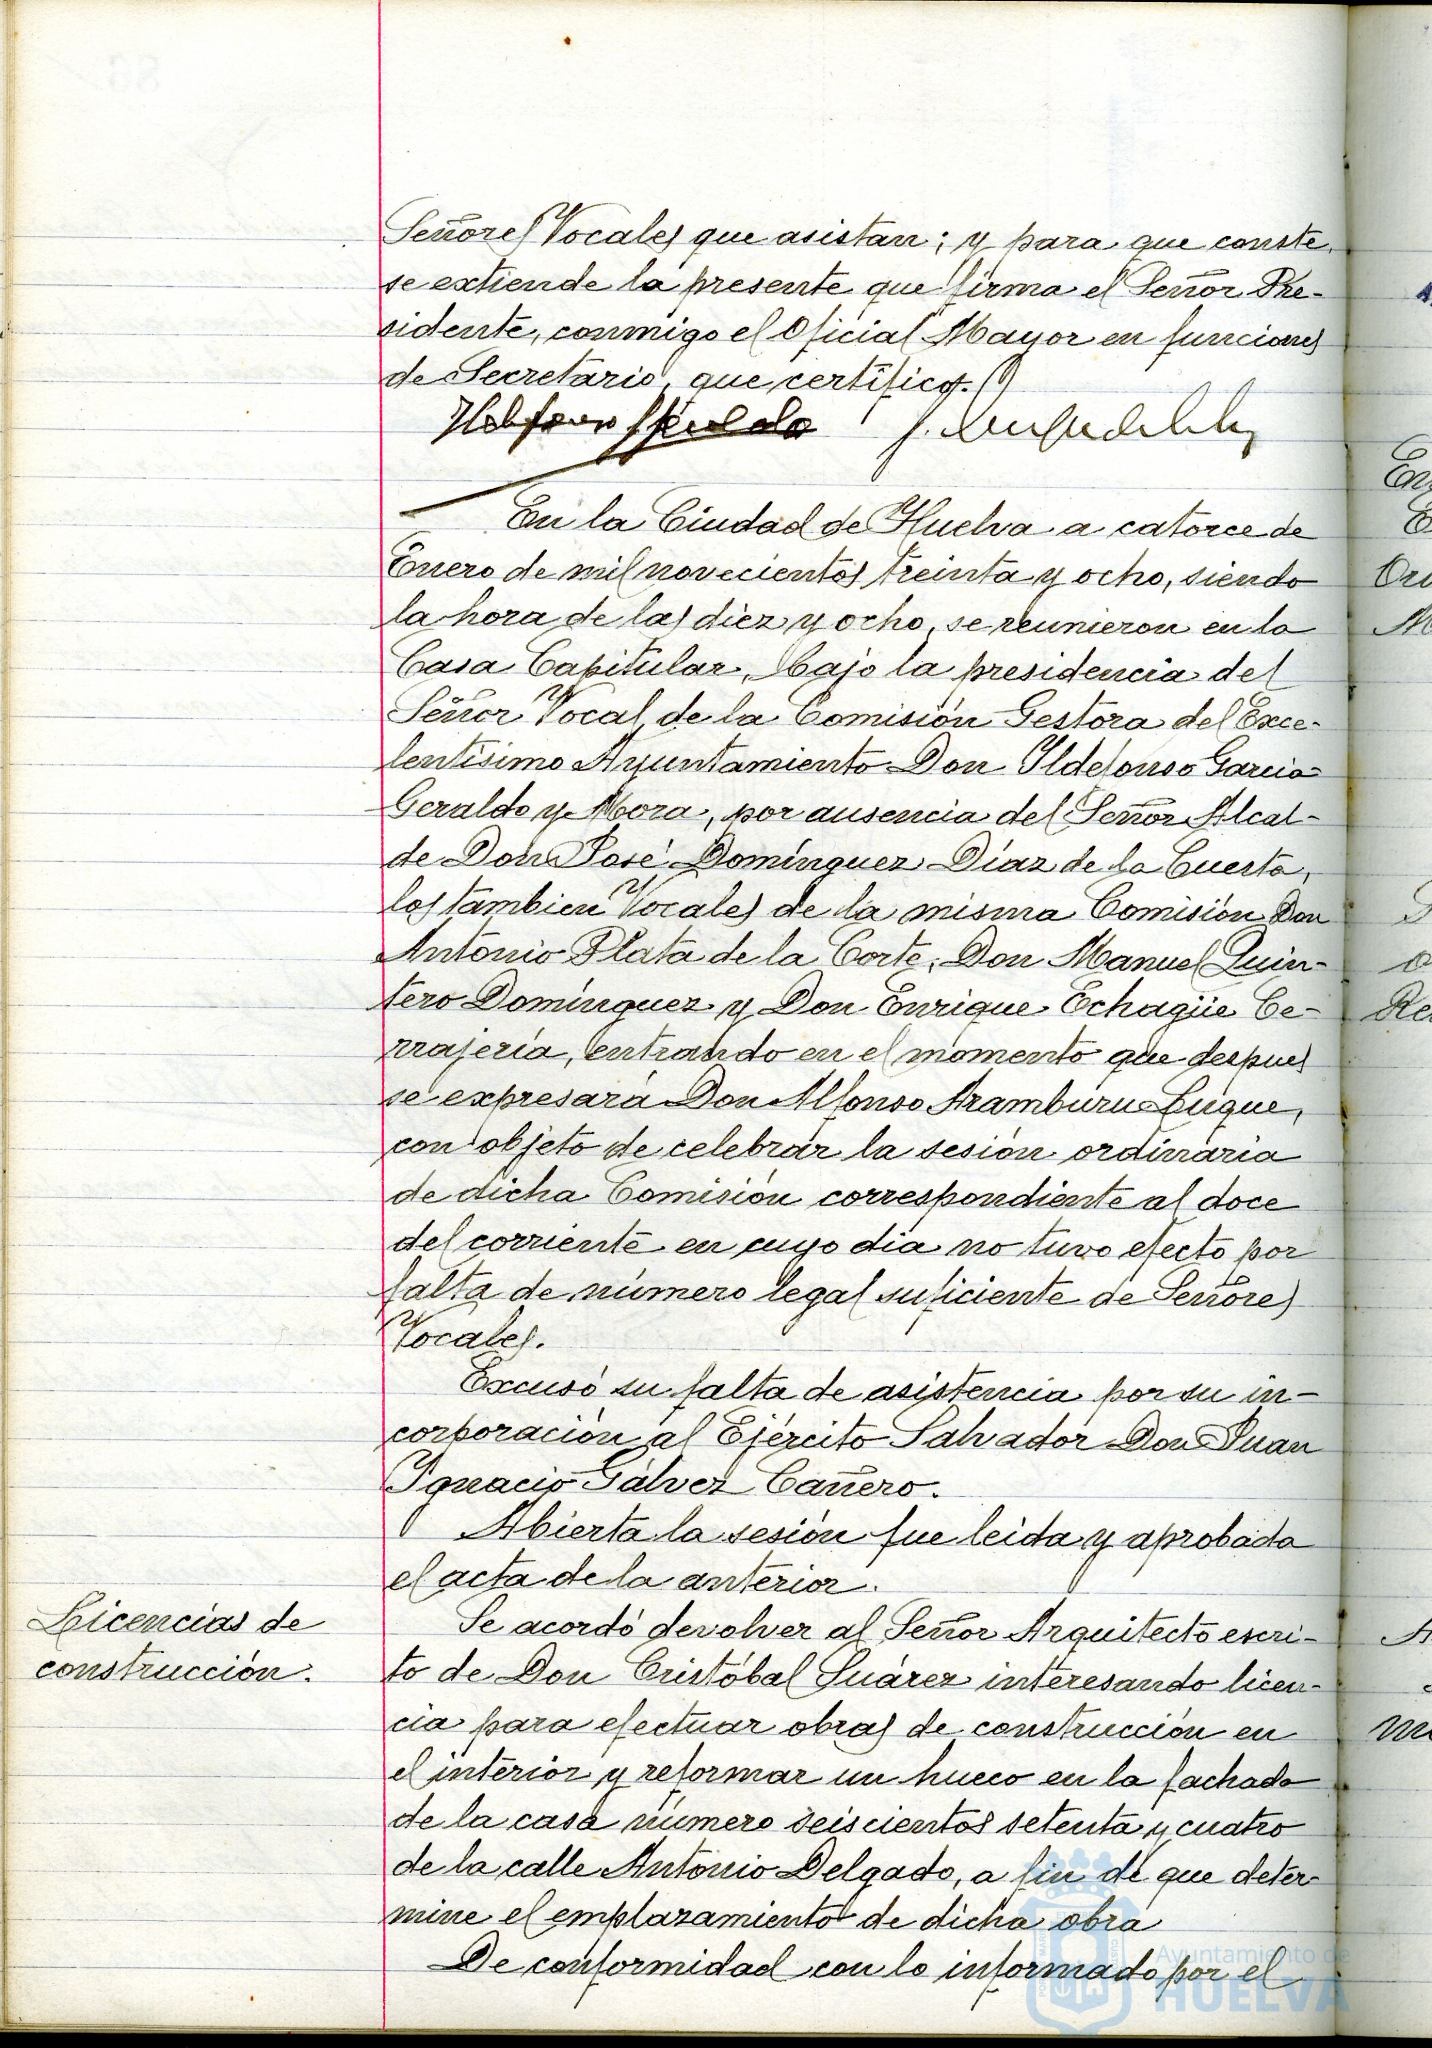 Señores Vocales que asistan; y para que conste,
se extiende la presente que firma el Señor Pre-
sidente, conmigo el Oficial Mayor en funciones
de Secretario, que certifico.
En la Ciudad de Huelva a catorce de
Enero de mil novecientos treinta y ocho, siendo
la hora de las diez y ocho, se reunieron en la
Casa Capitular, bajo la presidencia del
Señor Vocal de la Comisión Gestora del Exce-
lentísimo Ayuntamiento Don Ildefonso Garcia
Geraldo y Mora, por ausencia del Señor Alcal-
de Don José Domínguez Díaz de la Cuesta,
los tambien Vocales de la misma Comisión Don
Antonio Plata de la Corte, Don Manuel Quin-
tero Domínguez y Don Enrique Echagüe Ce-
rrajería, entrando en el momento que despues
se expresará Don Alfonso Aramburu Luque,
con objeto de celebrar la sesión ordinaria
de dicha Comisión correspondiente al doce
del corriente en cuyo día no tuvo efecto por
falta de número legal suficiente de Señores
Vocales.
Excusó su falta de asistencia por su in-
corporación al Ejército Salvador Don Juan
Ignacio Gálvez Cañero.
Abierta la sesión fue leida y aprobada
el acta de la anterior.
Licencias de
construcción.
Se acordó devolver al Señor Arquitecto escri-
to de Don Cristóbal Suárez interesando licen-
cia para efectuar obras de construcción en
el interior y reformar un hueco en la fachada
de la casa número seiscientos setenta y cuatro
de la calle Antonio Delgado, a fin de que deter-
mine el emplazamiento de dicha obra
De conformidad con lo informado por el
Ayuntamiento de
HUELVA